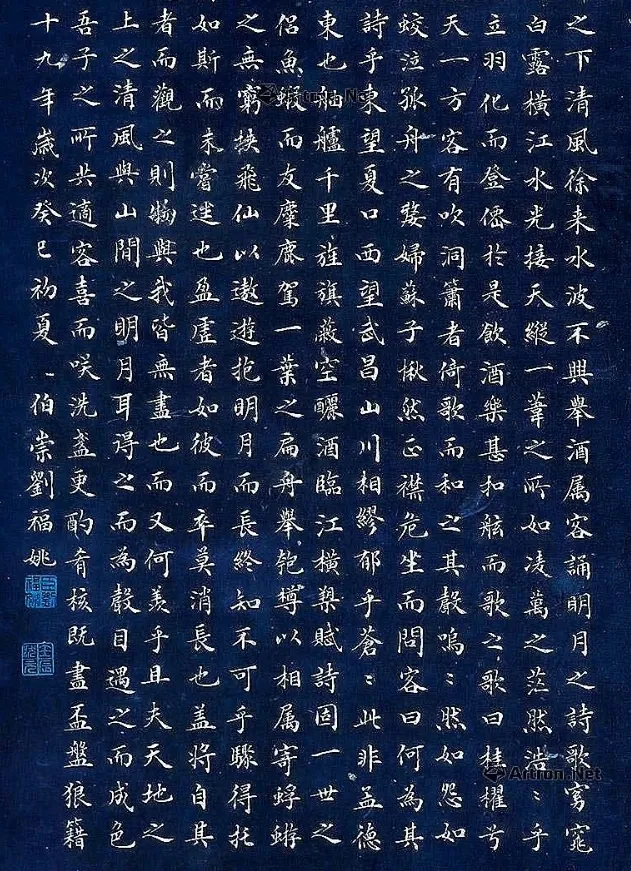 之下清風徐来水波不興舉酒属客誦明月之詩歌窈窕
白露橫江水光接天縱一葦之所如凌萬之茫然浩〻乎
立羽化而登僊於是飲酒樂甚扣舷而歌之歌曰桂櫂兮
天一方客有吹洞簫者倚歌而和之其聲嗚〻然如怨如
蛟泣孤舟之嫠婦蘇子愀然正襟危坐而問客曰何為其
詩乎東望夏口西望武昌山川相繆郁乎蒼〻此非孟德
東也舳艫千里旌旗蔽空釃酒臨江橫槊賦詩固一世之
侶魚蝦而友麋鹿駕一葉之扁舟舉匏樽以相属寄蜉蝣
之無窮挾飛仙以遨遊抱明月而長終知不可乎驟得托
如斯而未嘗逝也盈虛者如彼而卒莫消長也盖將自其
者而觀之則物與我皆無盡也而又何羨乎且夫天地之
上之清風與山間之明月耳得之而為聲目遇之而成色
吾子之所共適客喜而咲洗盞更酌肴核既盡盃盤狼籍
十九年歲次癸巳初夏 伯崇劉福姚
Artron.Net
Artron.Net